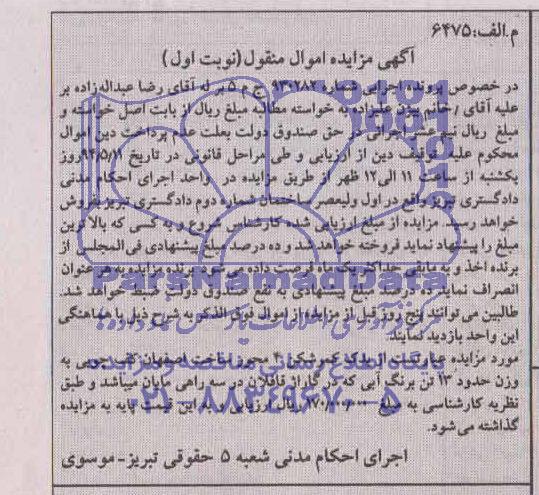 م.الف:۶۴۷۵
آگهی مزایده اموال منقول(نوبت اول)
در خصوص پرونده اجرایی شماره ۹۳۰۲۸۲ ج م ۵ بر له آقای رضا عبداله‌زاده بر
علیه آقای /خانم علیزاده به خواسته مطالبه مبلغ ریال از بابت اصل خواسته و
مبلغ ریال نیم عشر اجرائی در حق صندوق دولت بعلت عدم پرداخت دین اموال
محکوم علیه توقیف دین از ارزیابی و طی مراحل قانونی در تاریخ ۹۴/۵/۱۱روز
یکشنبه از ساعت ۱۱ الی۱۲ ظهر از طریق مزایده در واحد اجرای احکام مدنی
دادگستری تبریز واقع در اول ولیعصر ساختمان شماره دوم دادگستری تبریز بفروش
خواهد رسید. مزایده از مبلغ ارزیابی شده کارشناس شروع و به کسی که بالاترین
مبلغ را پیشنهاد نماید فروخته خواهد شد و ده درصد مبلغ پیشنهادی فی المجلس از
برنده اخذ و به مابقی حداکثر یک ماه فرصت داده می شود برنده مزایده به هر عنوان
انصراف نماید مبلغ پیشنهادی به نفع صندوق دولت ضبط خواهد شد.
طالبین می توانند پنج روز قبل از مزایده از اموال فوق الذکر به شرح ذیل با هماهنگی
این واحد بازدید نمایند.
مورد مزایده عبارتست از یدک کمرشکن ۴ محور ساخت اصفهان کف چوبی به
وزن حدود ۱۳ تن برنگ آبی که در گاراژ قافلان در سه راهی مایان میباشد و طبق
نظریه کارشناسی به مبلغ ریال ارزیابی و به این قیمت پایه به مزایده
گذاشته می شود.
اجرای احکام مدنی شعبه ۵ حقوقی تبریز-موسوی
ParsNamadData
پایگاه اطلاع رسانی مناقصه و مزایده
۰۲۱-۸۸۳۴۹۶۷۰-۵